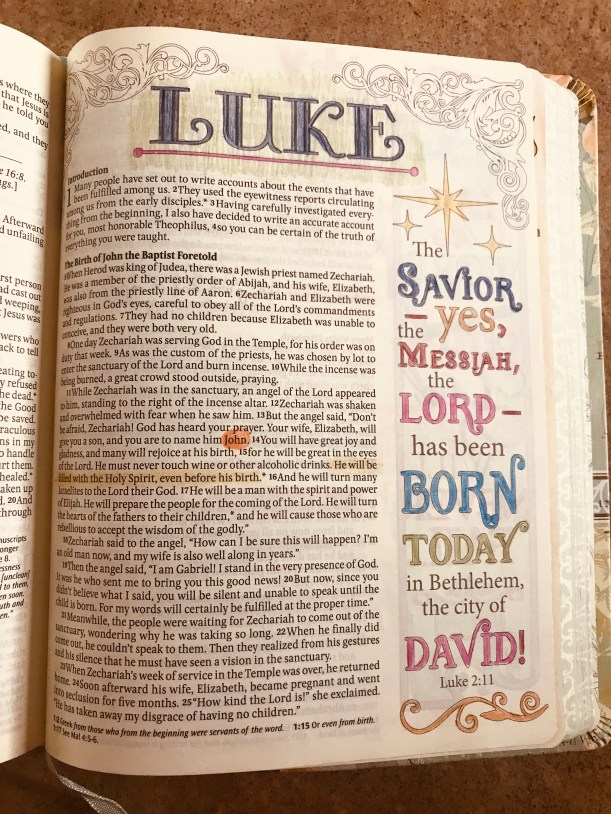 s where they
that Jesus is
he told you
ed, and they
e 16:8.
ngs.]
Afterward
d unfailing
rst person
ad cast out
weeping,
t Jesus was
owers who
ack to tell
eating to-
y refused
he dead."
the Good
be saved.
raculous
ns in my
o handle
urt them.
healed."
aken up
d. 20And
through
nuscripts
onger
e 8.
essness
[unclean]
d to them,
en soon.
uth and
en."
LUKE
Introduction
1 Many people have set out to write accounts about the events that have
been fulfilled among us. 2They used the eyewitness reports circulating
among us from the early disciples.* 3Having carefully investigated every-
thing from the beginning, I also have decided to write an accurate account
for you, most honorable Theophilus, 4so you can be certain of the truth of
everything you were taught.
The Birth of John the Baptist Foretold
5When Herod was king of Judea, there was a Jewish priest named Zechariah.
He was a member of the priestly order of Abijah, and his wife, Elizabeth,
was also from the priestly line of Aaron. 6Zechariah and Elizabeth were
righteous in God's eyes, careful to obey all of the Lord's commandments
and regulations. 7They had no children because Elizabeth was unable to
conceive, and they were both very old.
8One day Zechariah was serving God in the Temple, for his order was on
duty that week. 9As was the custom of the priests, he was chosen by lot to
enter the sanctuary of the Lord and burn incense. 10While the incense was
being burned, a great crowd stood outside, praying.
11While Zechariah was in the sanctuary, an angel of the Lord appeared
to him, standing to the right of the incense altar. 12Zechariah was shaken
and overwhelmed with fear when he saw him. 13But the angel said, "Don't
be afraid, Zechariah! God has heard your prayer. Your wife, Elizabeth, will
give you a son, and you are to name him John. 14You will have great joy and
gladness, and many will rejoice at his birth, 15for he will be great in the eyes
of the Lord. He must never touch wine or other alcoholic drinks. He will be
filled with the Holy Spirit, even before his birth.* 16And he will turn many
Israelites to the Lord their God. 17He will be a man with the spirit and power
of Elijah. He will prepare the people for the coming of the Lord. He will turn
the hearts of the fathers to their children,* and he will cause those who are
rebellious to accept the wisdom of the godly."
18Zechariah said to the angel, "How can I be sure this will happen? I'm
an old man now, and my wife is also well along in years."
19Then the angel said, "I am Gabriel! I stand in the very presence of God.
It was he who sent me to bring you this good news! 20But now, since you
didn't believe what I said, you will be silent and unable to speak until the
child is born. For my words will certainly be fulfilled at the proper time."
21Meanwhile, the people were waiting for Zechariah to come out of the
sanctuary, wondering why he was taking so long. 22When he finally did
come out, he couldn't speak to them. Then they realized from his gestures
and his silence that he must have seen a vision in the sanctuary.
23When Zechariah's week of service in the Temple was over, he returned
home. 24Soon afterward his wife, Elizabeth, became pregnant and went
into seclusion for five months. 25"How kind the Lord is!" she exclaimed.
"He has taken away my disgrace of having no children."
1:2 Greek from those who from the beginning were servants of the word. 1:15 Or even from birth.
1:17 See Mal 4:5-6.
The
SAVIOR
– yes,
the
MESSIAH,
the
LORD –
has been
BORN
TODAY
in Bethlehem,
the city of
DAVID!
Luke 2:11